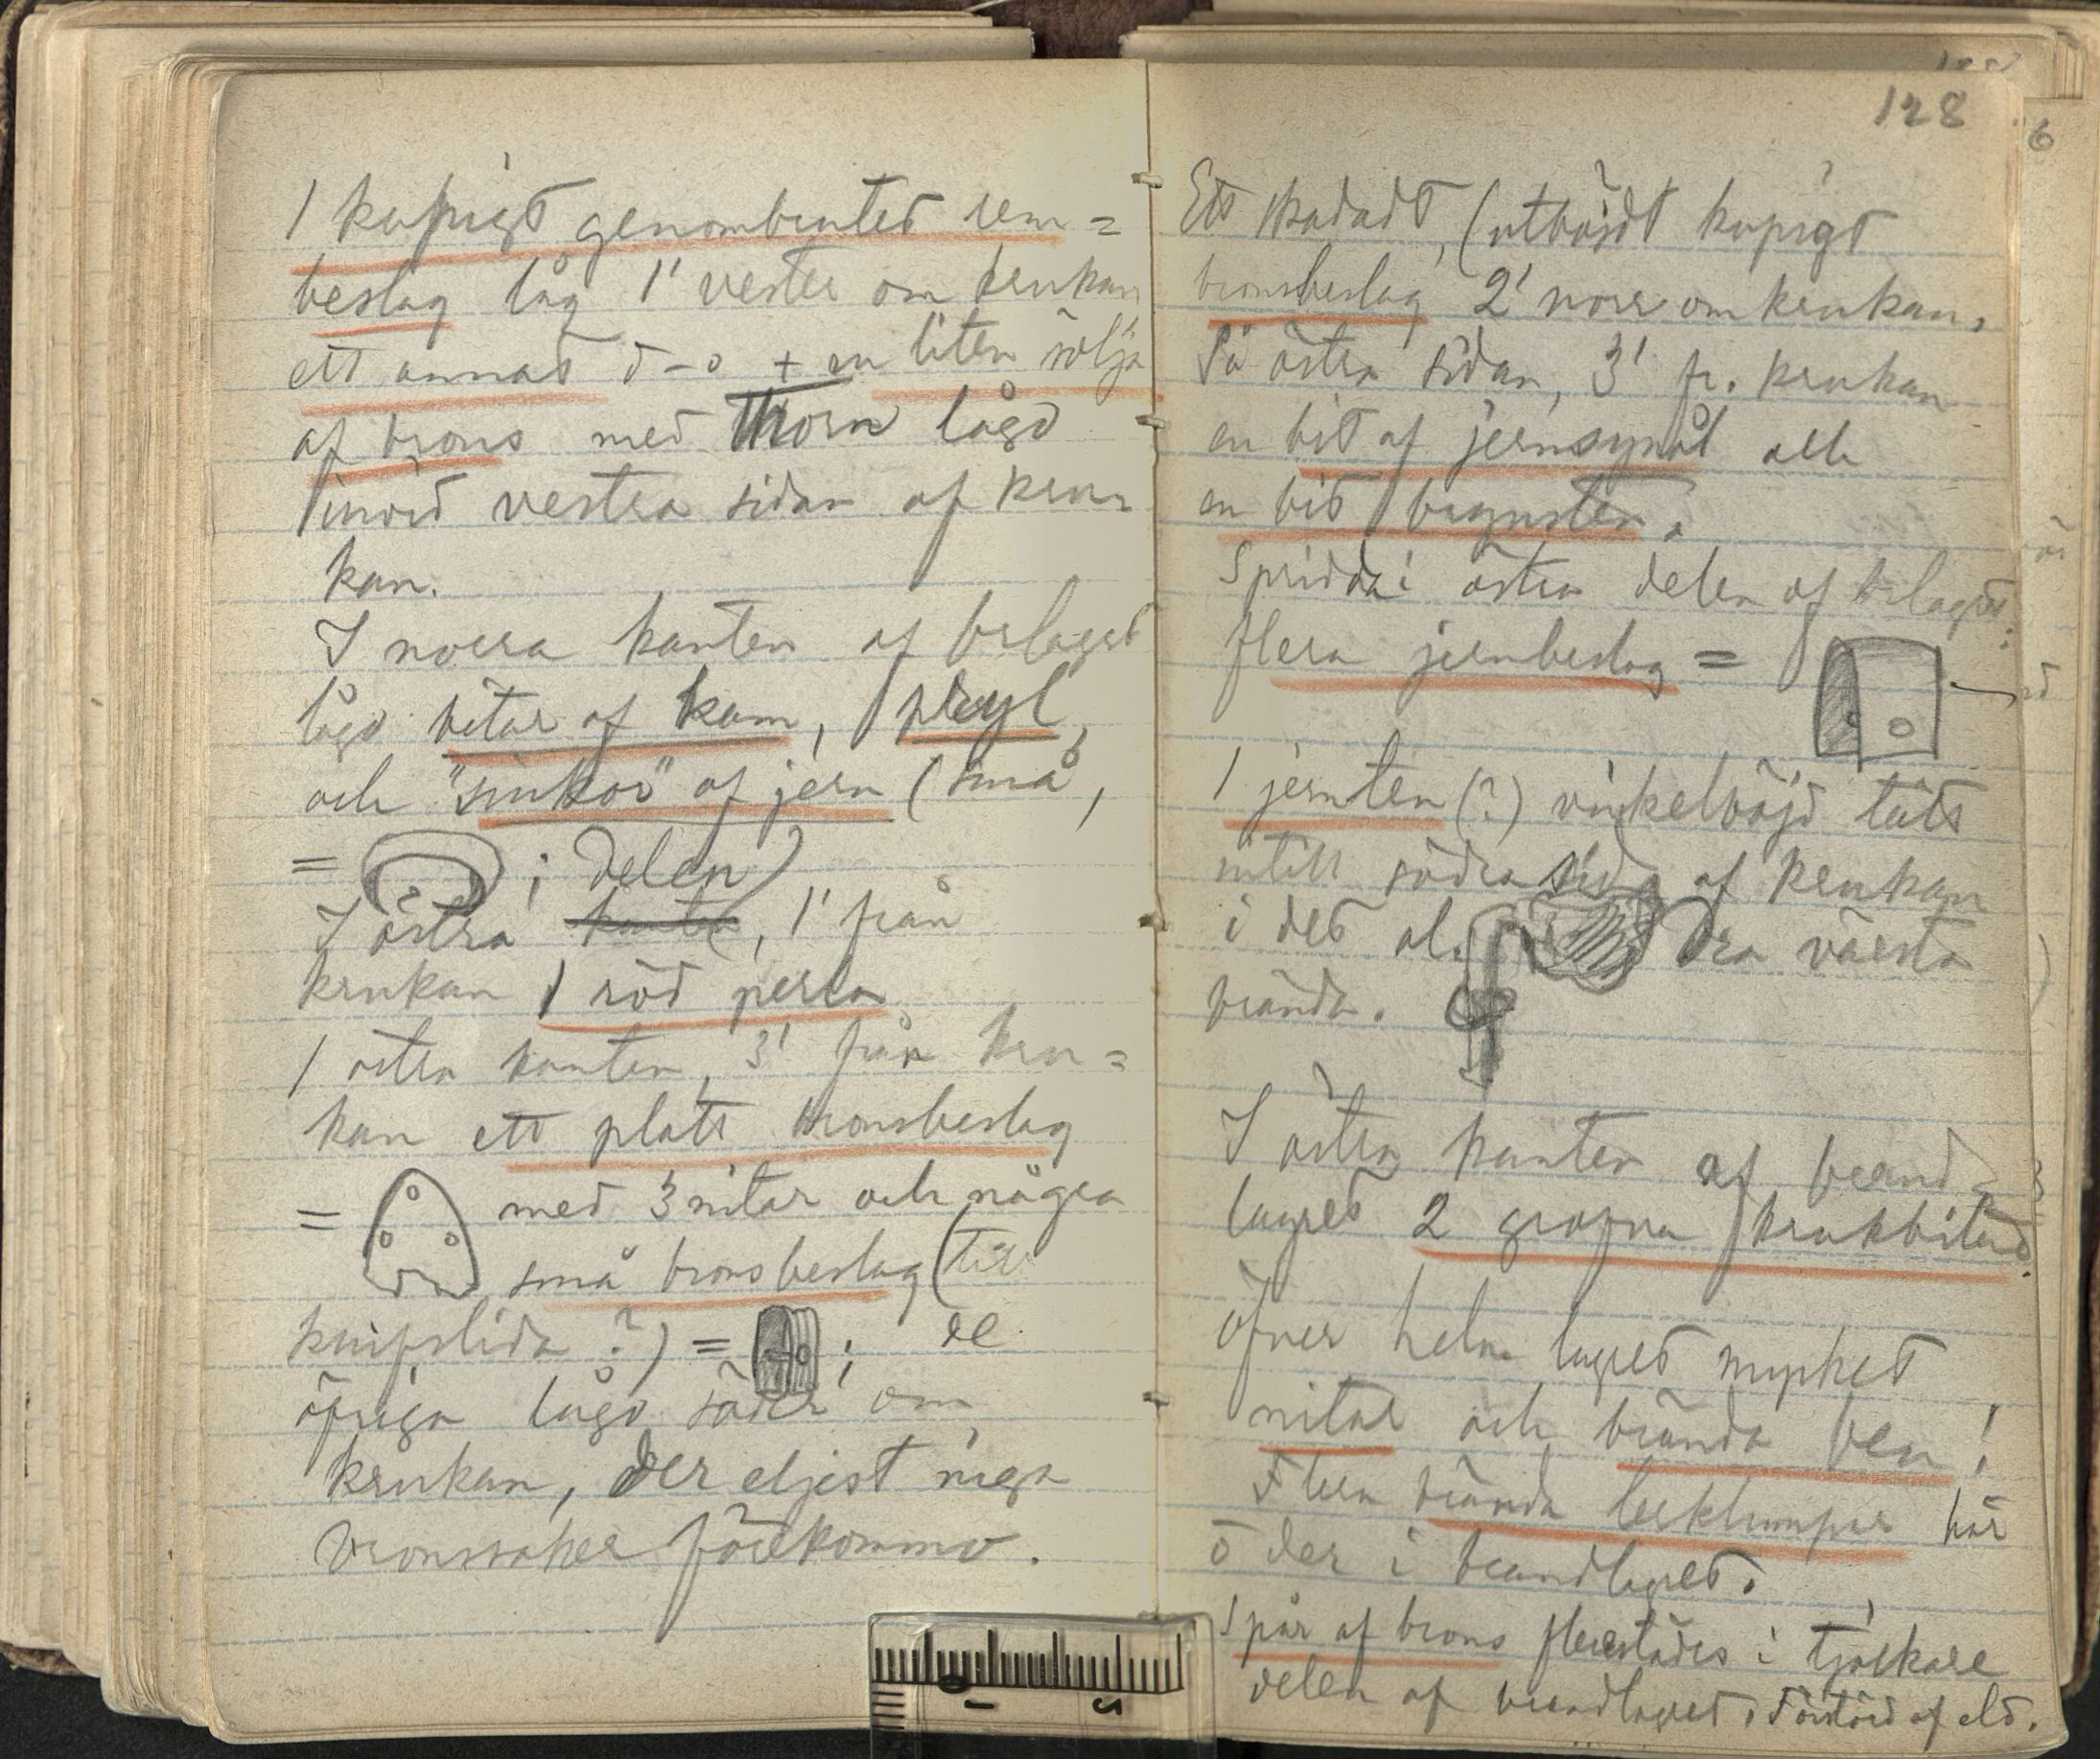 1 kupigt genombrutet rem=
beslag låg 1' vester om krukan
ett annat d-o + en liten sölja
af brons med Thorn lågo
invid vestra sidan af kru-
kan.
I norra kanten af brlagret
lågo bitar af kam, pryl
och "sinkor" af jern (små,
= ; delen)
I östra kanten, 1' från
krukan 1 röd perla
I östra kanten, 3' från kru=
kan ett platt bronsbeslag
= med 3 nitar och några
små bronsbeslag (till
knifslida ?) = ; de
öfriga lågo söder om
krukan, der eljest inga
bronssaker förekommo.
128
Ett skadadt, (utböjdt kupigt
bronsbeslag 2' norr om krukan.
På östra sidan, 3' fr. krukan
en bit af jernsynål och
en bit
Spridda i östra delen af brlagret:
flera jernbeslag =
1 jernten (?) vinkelböjd tätt
intill södra sida af krukan
i det al. dra värsta
brända.
I östra kanten af brand-
lagret 2 grofva krukbitar.
Öfver hela lagret mycket
nitar och brända ben!
Flera brända lerklumpar här
o der i brandlagret.
Spår af brons flerestädes i tjockare
delen af brandlagret. Förstörd af eld.
6